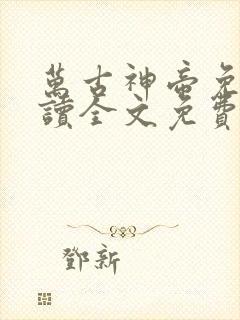 萬古神帝免
讀全文免費
鄧新